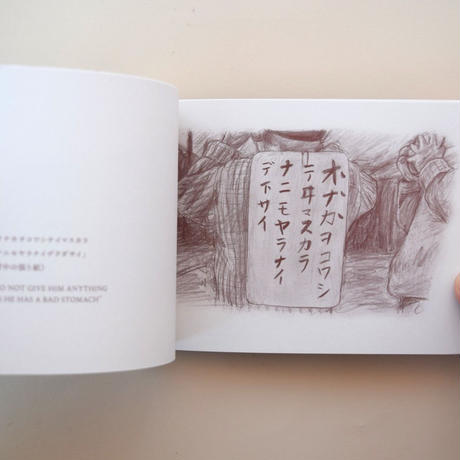 ナカヲコワシテイマスカラ
ナニモヤラナイデクダサイ」
背中の張り紙）
O NOT GIVE HIM ANYTHING
S HE HAS A BAD STOMACH"
オナカヲコワシ
テヰマスカラ
ナニモヤラナイ
デ下サイ